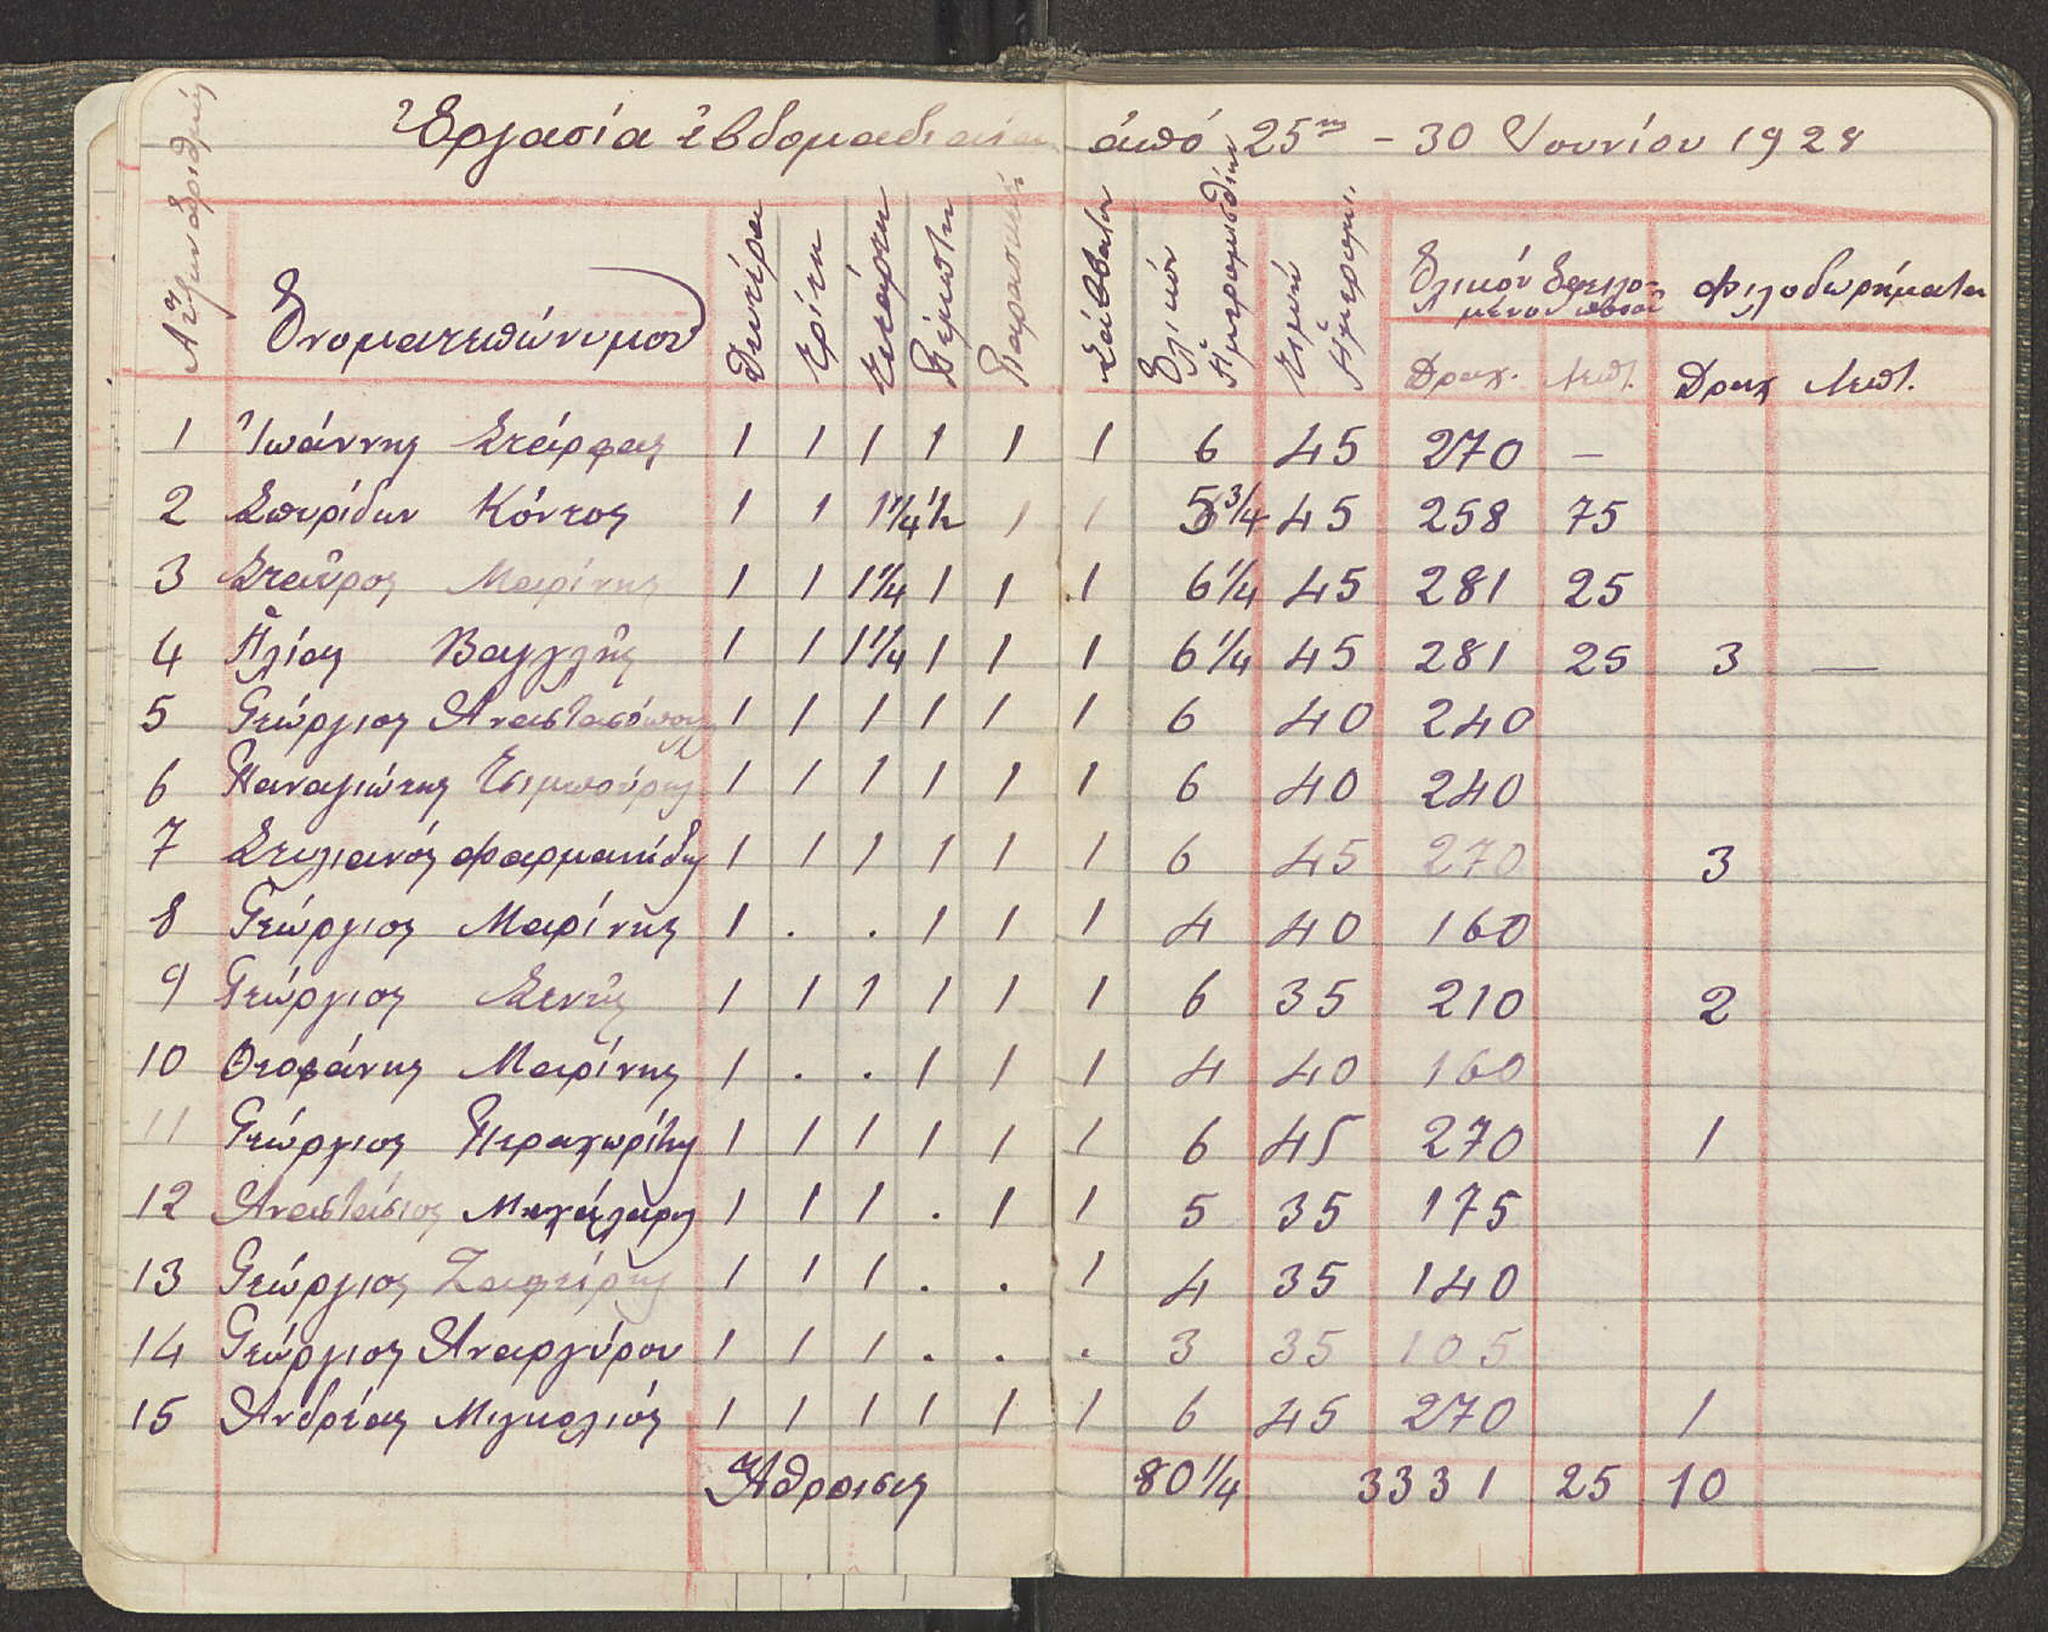 Ἐργασία ἑβδομαδιαία ἀπό 25ης - 30 Ἰουνίου 1928
Αὔξων ἀριθμός Ὀνοματεπώνυμον Δευτέρα Τρίτη Τετάρτη Πέμπτη Παρασκευή Σάββατον Ὁλικόν Ἡμερομισθίων Τιμή Ἡμερομι. Ὁλικόν ὀφειλόμενον ποσόν Φιλοδωρήματα
Δραχ. Λεπτ. Δραχ Λεπτ.
1 Ἰωάννης Στάρφας 1 1 1 1 1 1 6 45 270 —
2 Σπυρίδων Κόντος 1 1 1 1/4 1/2 1 1 5 3/4 45 258 75
3 Σταῦρος Μαρίνης 1 1 1 1/4 1 1 1 6 1/4 45 281 25
4 Ἠλίας Βαγγλῆς 1 1 1 1/4 1 1 1 6 1/4 45 281 25 3 —
5 Γεώργιος Ἀναστασόπουλος 1 1 1 1 1 1 6 40 240
6 Παναγιώτης Τσιμπούρης 1 1 1 1 1 1 6 40 240
7 Στυλιανός Φαρμακίδης 1 1 1 1 1 1 6 45 270 3
8 Γεώργιος Μαρίνης 1 . . 1 1 1 4 40 160
9 Γεώργιος Ξενῆς 1 1 1 1 1 1 6 35 210 2
10 Θεοφάνης Μαρίνης 1 . . 1 1 1 4 40 160
11 Γεώργιος Περαχωρίτης 1 1 1 1 1 1 6 45 270 1
12 Ἀναστάσιος 1 1 1 . 1 1 5 35 175
13 Γεώργιος Ζαφείρης 1 1 1 . . 1 4 35 140
14 Γεώργιος Ἀναργύρου 1 1 1 . . . 3 35 105
15 Ἀνδρέας 1 1 1 1 1 1 6 45 270 1
Ἄθροισις 80 1/4 3331 25 10